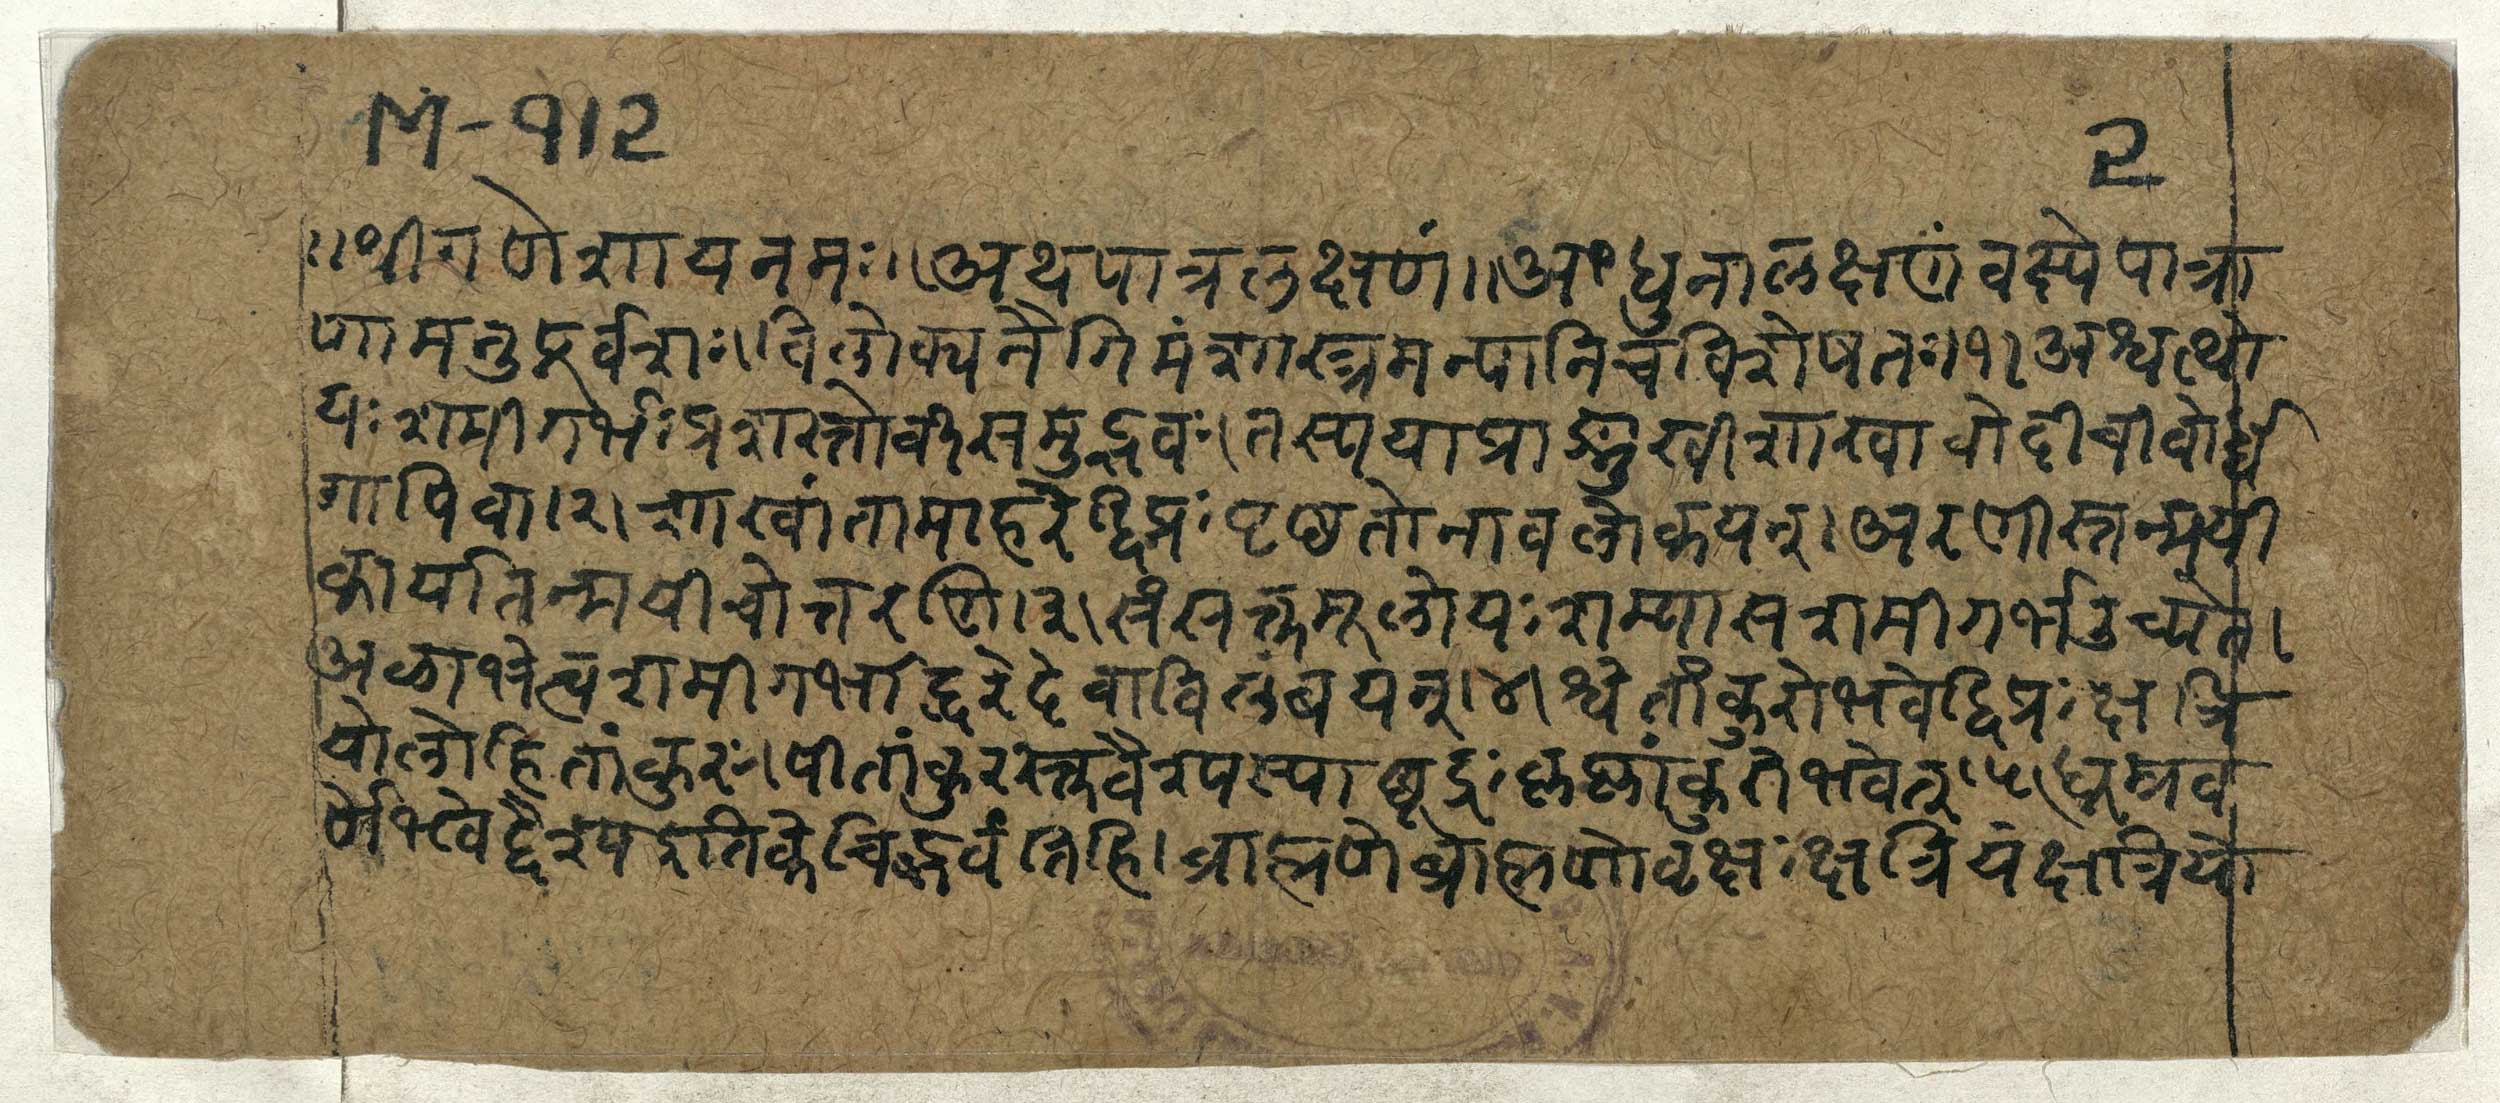 M-912
2
॥श्रीगणेशायनमः॥अथपात्रलक्षणं॥अधुनालक्षणंवक्ष्येपात्रा
णामनुपूर्वशः।विलोक्यनैगिमंशास्त्रमन्यानिचविशेषतः।१।अश्वत्थो
यःशमीगर्भःप्रशस्तोर्वीसमुद्भवः।तस्ययाप्राङ्मुखीशाखावोदीचीवोर्द्ध
गापिवा।२।शाखांतामाहरेद्विप्रःपृष्ठतोनावलोकयन्।अरणीस्तन्मयी
कार्यातन्मयीचोत्तरणि।३।संसक्तमूलोयःशम्यासशमीगर्भउच्यते।
अळाभेत्वशमीगर्भाद्धरेदेवाविलंबयन्।४।श्वेतांकुरोभवेद्विप्रःक्षत्रि
योलोहितांकुरः।पीतांकुरस्तुवैश्यस्याछूद्रःकृष्णांकुरोभवेत्।५।धूम्रव
र्णोभवेद्वैश्यइतिकेचिद्ब्रुवंतिहि।ब्राह्मणेब्राह्मणोवृक्षःक्षत्रियेक्षत्रियो